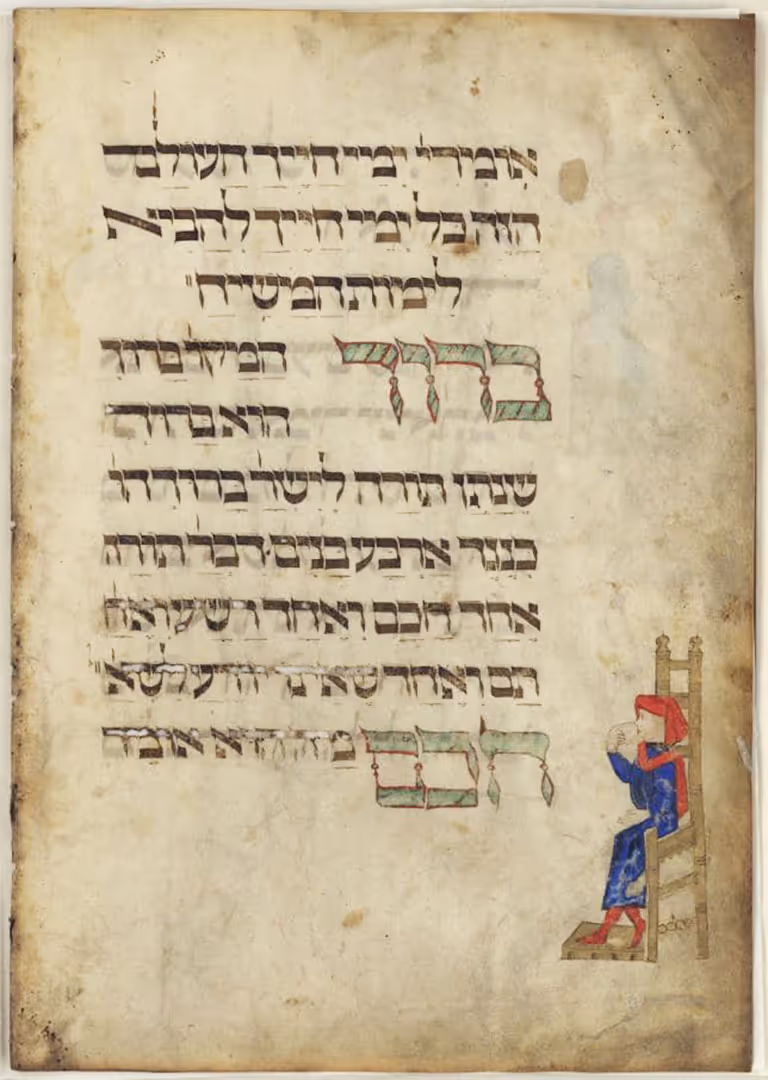 אומרי' ימי חייך העולם
הזה כל ימי חייך להביא
לימות המשיח
ברוך המקו' ברוך
הוא ברוך
שנתן תורה לישר' ברוך הו'
כנגד ארבע בנים דבר' תורה
אחד חכם ואחד רשע ואחד
תם ואחד שאינו יודע לשא'
חכם מה הוא אומר